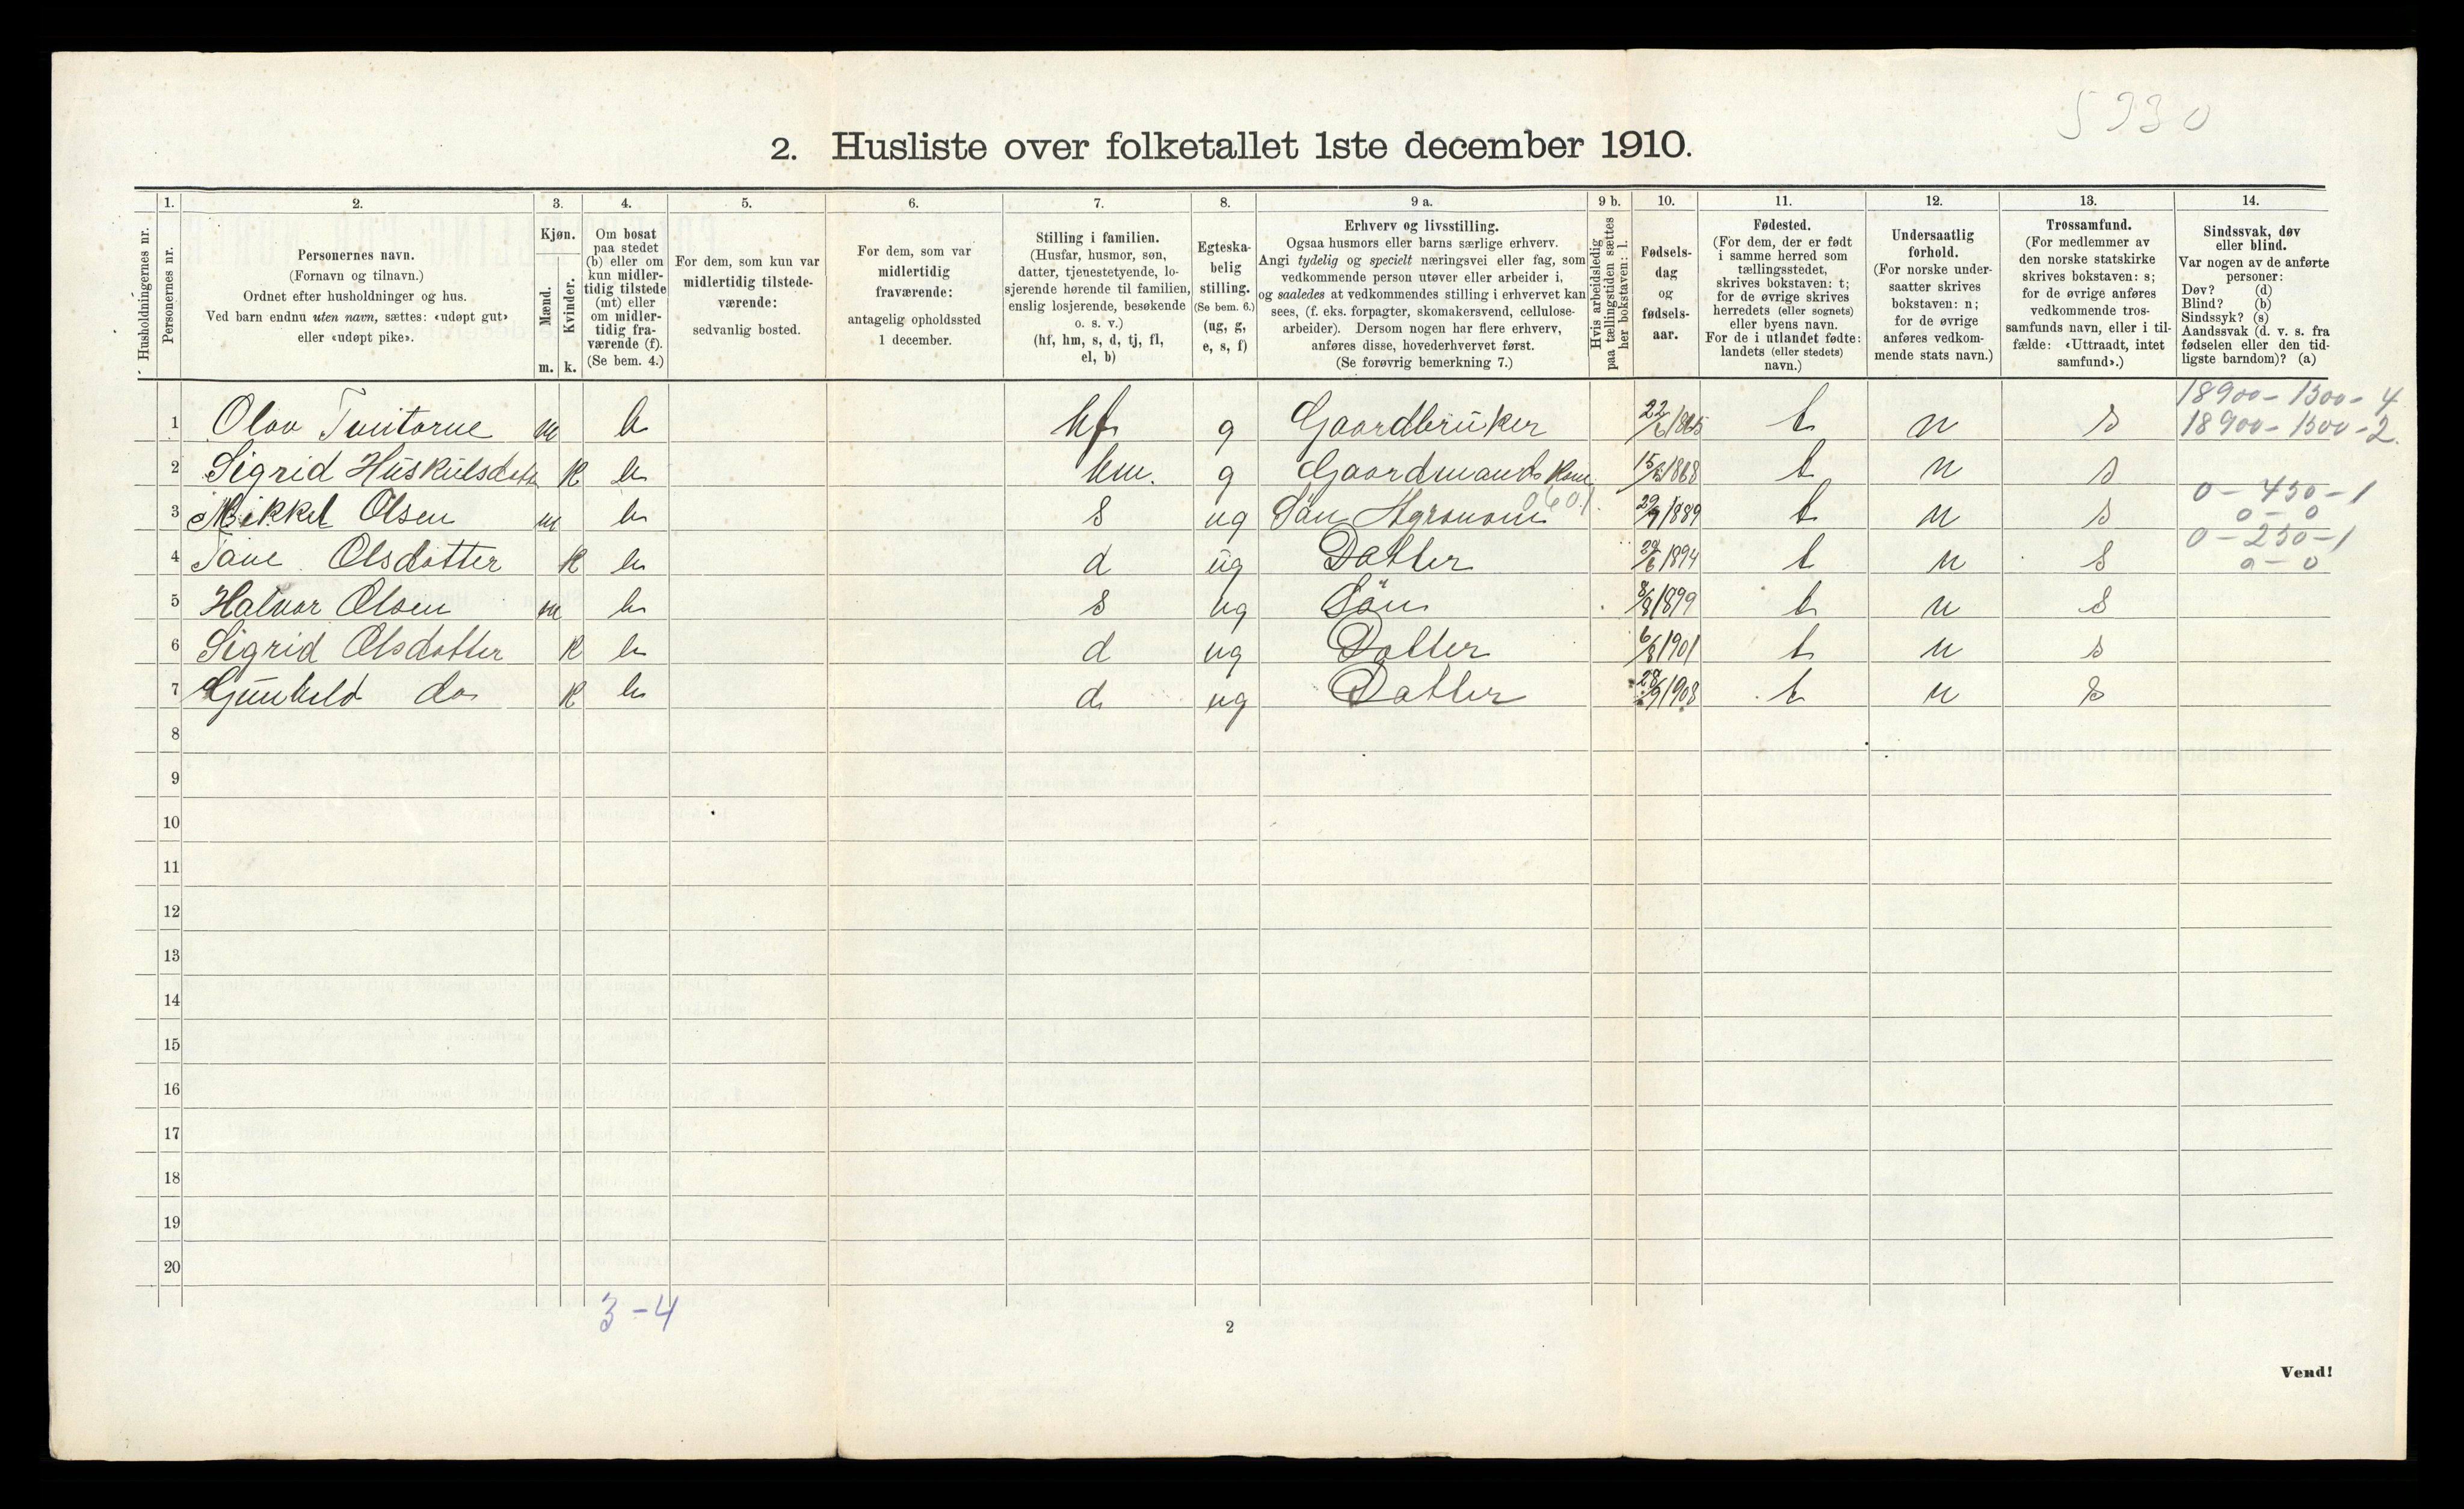 5930
2. Husliste over folketallet 1ste december 1910.
Husholdningernes nr.
1.
Personernes nr.
2.
Personernes navn.
(Fornavn og tilnavn.)
Ordnet efter husholdninger og hus.
Ved barn endnu uten navn, sættes: «udøpt gut»
eller «udøpt pike».
3.
Kjøn.
Mænd.
Kvinder.
m. k.
4.
Om bosat
paa stedet
(b) eller om
kun midler-
tidig tilstede
(mt) eller
om midler-
tidig fra-
værende (f).
(Se bem. 4.)
5.
For dem, som kun var
midlertidig tilstede-
værende:
sedvanlig bosted.
6.
For dem, som var
midlertidig
fraværende:
antagelig opholdssted
1 december.
7.
Stilling i familien.
(Husfar, husmor, søn,
datter, tjenestetyende, lo-
sjerende hørende til familien,
enslig losjerende, besøkende
o. s. v.)
(hf, hm, s, d, tj, fl,
el, b)
8.
Egteska-
belig
stilling.
(Se bem. 6.)
(ug, g,
e, s, f)
9 a.
Erhverv og livsstilling.
Ogsaa husmors eller barns særlige erhverv.
Angi tydelig og specielt næringsvei eller fag, som
vedkommende person utøver eller arbeider i,
og saaledes at vedkommendes stilling i erhvervet kan
sees, (f. eks. forpagter, skomakersvend, cellulose-
arbeider). Dersom nogen har flere erhverv,
anføres disse, hovederhvervet først.
(Se forøvrig bemerkning 7.)
9 b.
Hvis arbeidsledig
paa tællingstiden sættes
her bokstaven: l.
10.
Fødsels-
dag
og
fødsels-
aar.
11.
Fødested.
(For dem, der er født
i samme herred som
tællingsstedet,
skrives bokstaven: t;
for de øvrige skrives
herredets (eller sognets)
eller byens navn.
For de i utlandet fødte:
landets (eller stedets)
navn.)
12.
Undersaatlig
forhold.
(For norske under-
saatter skrives
bokstaven: n;
for de øvrige
anføres vedkom-
mende stats navn.)
13.
Trossamfund.
(For medlemmer av
den norske statskirke
skrives bokstaven: s;
for de øvrige anføres
vedkommende tros-
samfunds navn, eller i til-
fælde: «Uttraadt, intet
samfund».)
14.
Sindssvak, døv
eller blind.
Var nogen av de anførte
personer:
Døv? (d)
Blind? (b)
Sindssyk? (s)
Aandssvak (d. v. s. fra
fødselen eller den tid-
ligste barndom)? (a)
18900 - 1300 - 4
1 Olav Tveitorne m b hf g Gaardbruker 22/6 1865 t n s 18900 - 1300 - 2.
2 Sigrid Huskulsdatt k b hm. g Gaardmands Kone 1868 t n s
0 - 450 - 1
3 Mikkel Olsen m b s ug Søn Agronom 0601. 29/9 1889 t n s 0 - 0
0 - 250 - 1
4 Tone Olsdotter k b d ug Datter 1894 t n s 0 - 0
5 Halvor Olsen m b s ug Søn 8/8 1899 t n s
6 Sigrid Olsdatter k b d ug Datter 6/8 1901 t n s
7 Gunhild do k b d ug Datter 28/9 1908 t n s
8
9
10
11
12
13
14
15
16
17
18
19
20
3 - 4
2
Vend!